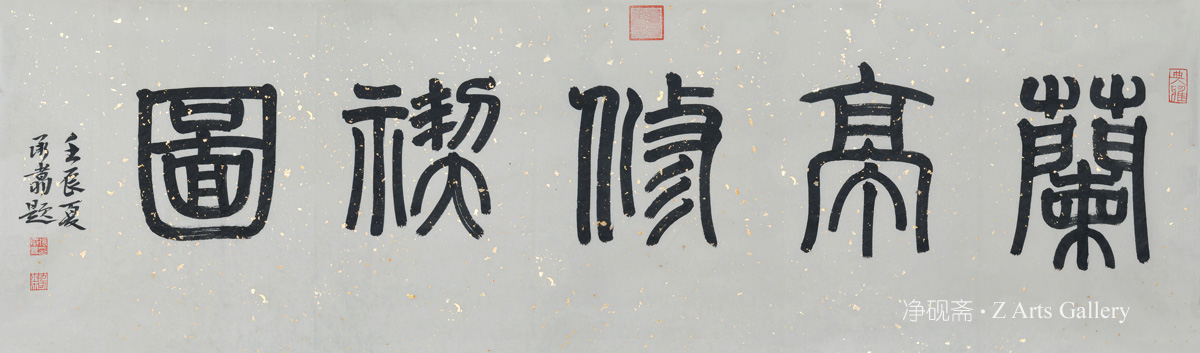 典雅
蘭亭修禊圖
壬辰夏
承翥題
净砚斋 · Z Arts Gallery